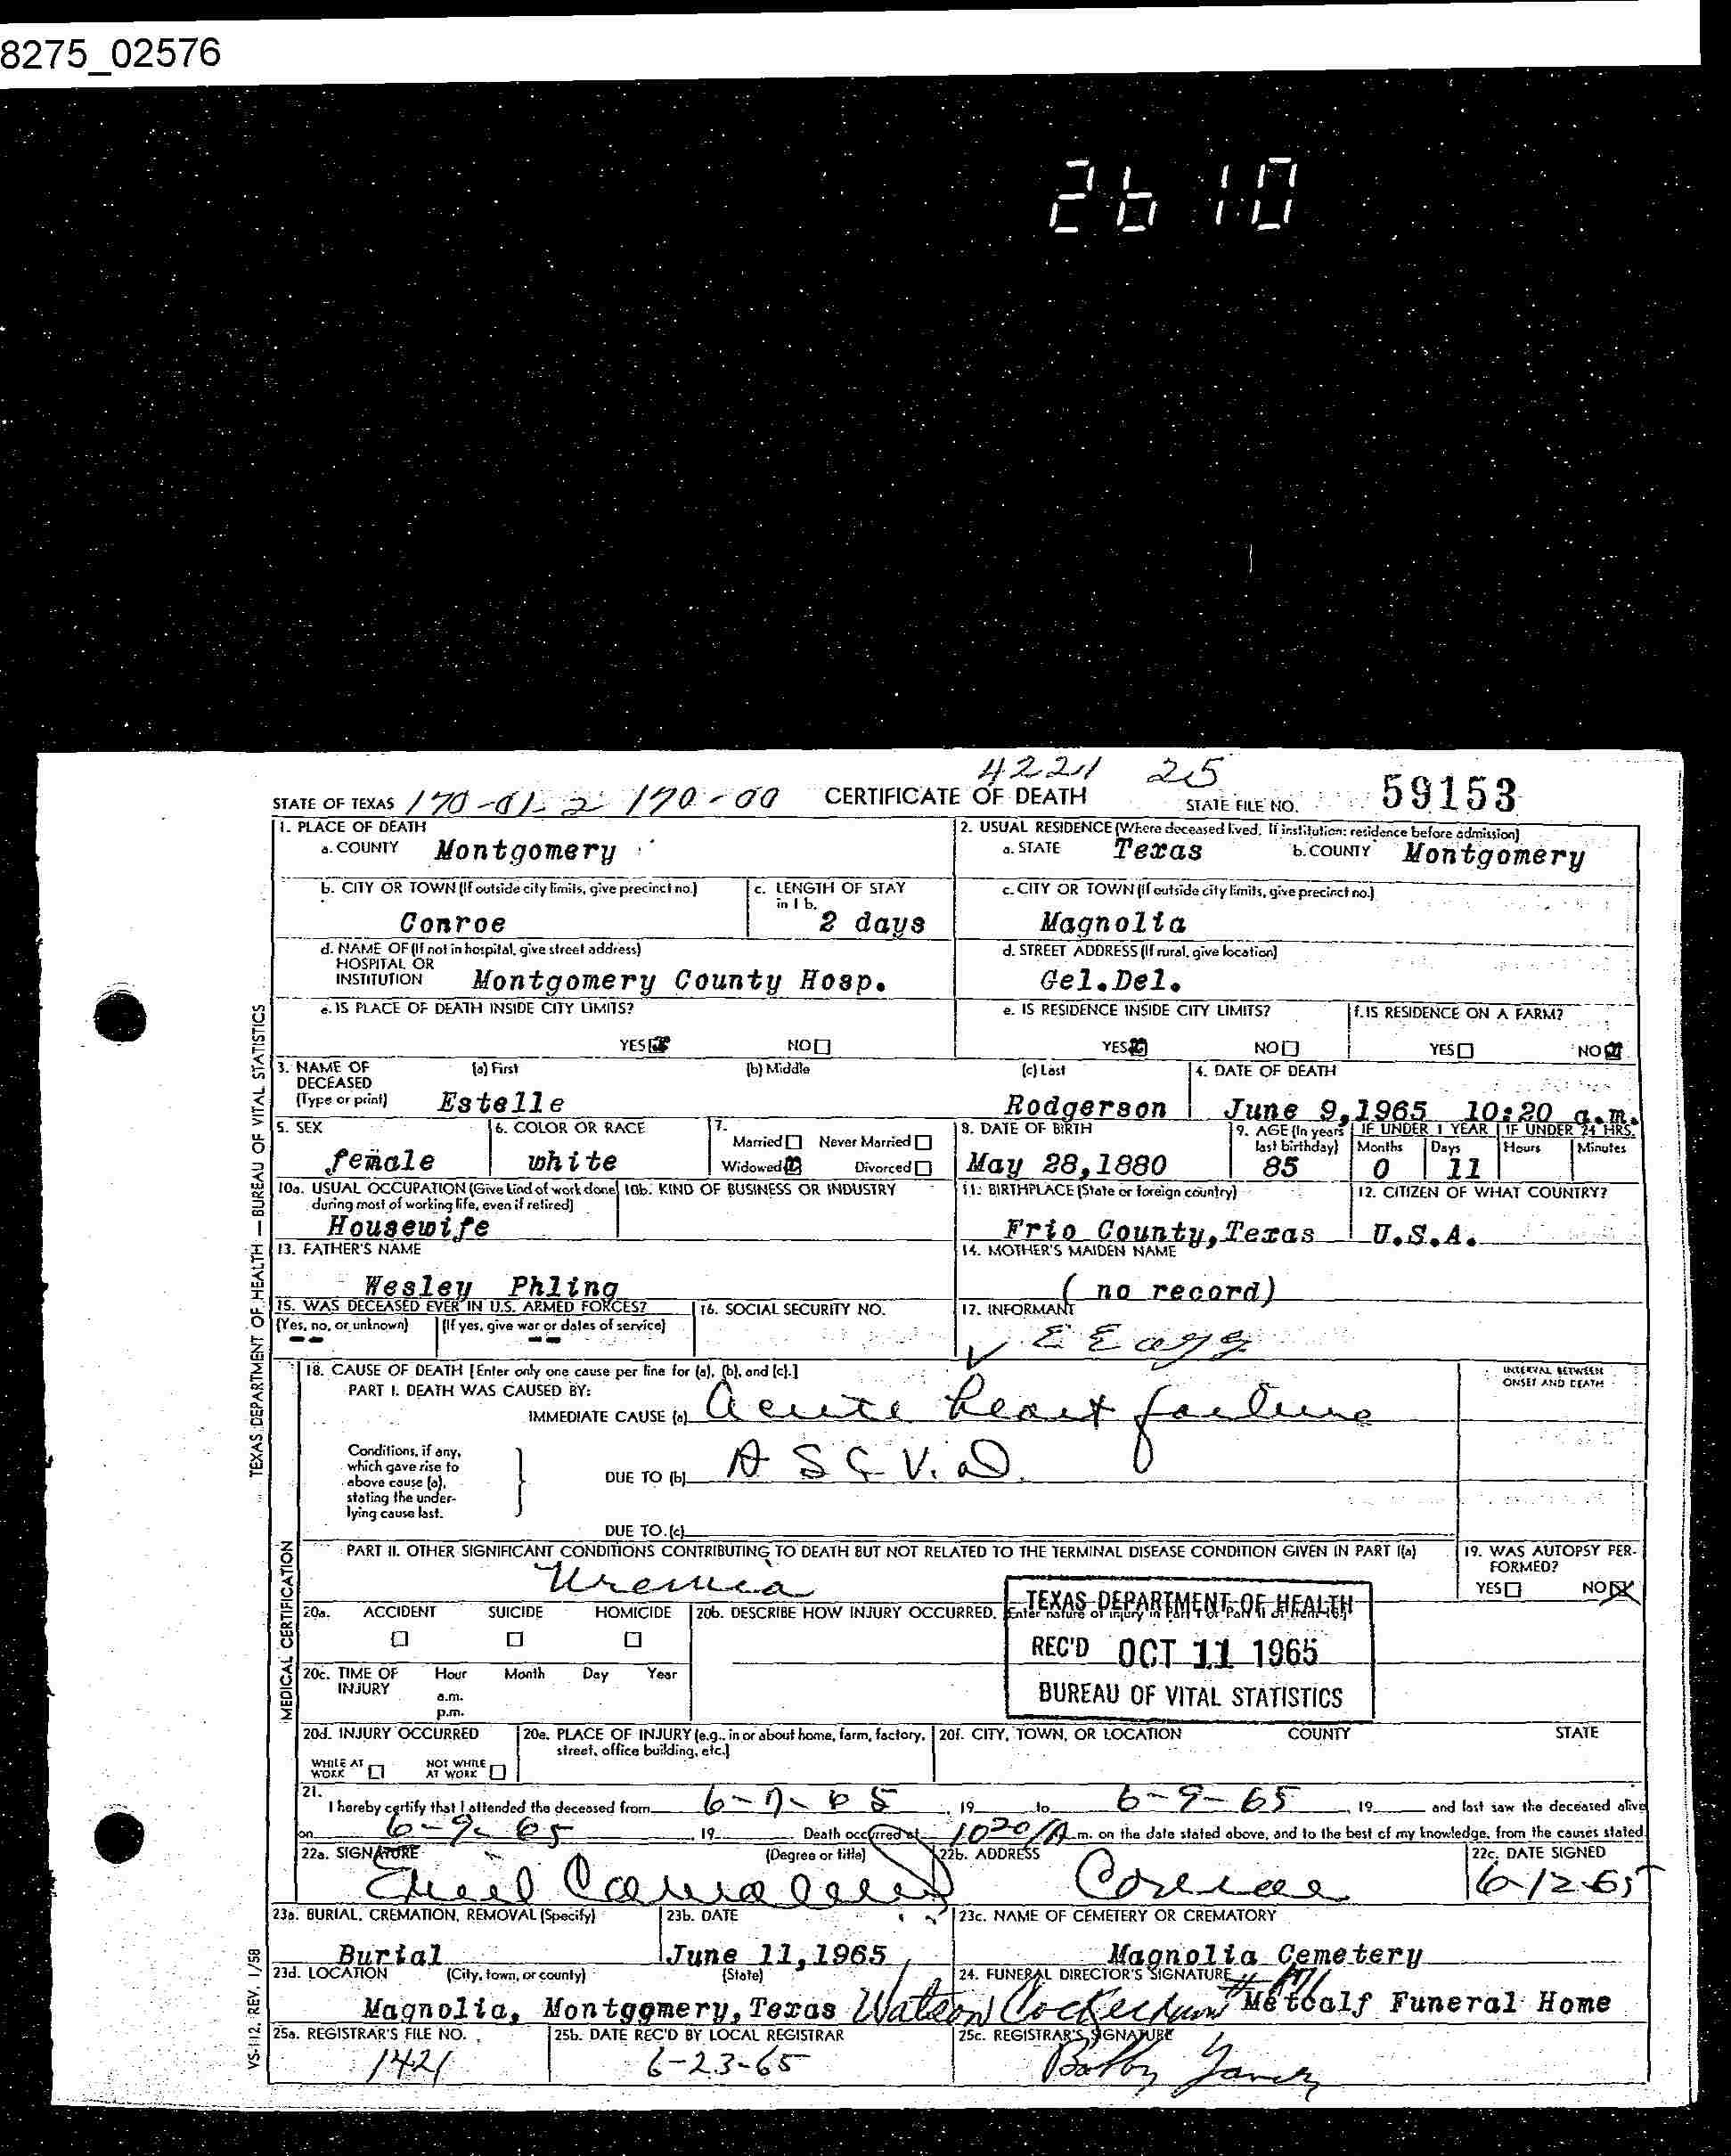 8275_02576
2610
4221 25
STATE OF TEXAS 170-01-2 170-00 CERTIFICATE OF DEATH STATE FILE NO. 59153
1. PLACE OF DEATH
a. COUNTY Montgomery
2. USUAL RESIDENCE (Where deceased lived. If institution: residence before admission)
a. STATE Texas b. COUNTY Montgomery
b. CITY OR TOWN (If outside city limits, give precinct no.) Conroe
c. LENGTH OF STAY in 1b. 2 days
c. CITY OR TOWN (If outside city limits, give precinct no.) Magnolia
d. NAME OF (If not in hospital, give street address) HOSPITAL OR INSTITUTION Montgomery County Hosp.
d. STREET ADDRESS (If rural, give location) Gel.Del.
e. IS PLACE OF DEATH INSIDE CITY LIMITS?
YES NO
e. IS RESIDENCE INSIDE CITY LIMITS?
YES NO
f. IS RESIDENCE ON A FARM?
YES NO
3. NAME OF DECEASED (Type or print)
(a) First Estelle (b) Middle (c) Last Rodgerson
4. DATE OF DEATH June 9,1965 10:20 a.m.
5. SEX female
6. COLOR OR RACE white
7. Married Never Married
Widowed Divorced
8. DATE OF BIRTH May 28,1880
9. AGE (In years last birthday) 85
IF UNDER 1 YEAR Months 0 Days 11
IF UNDER 24 HRS. Hours Minutes
10a. USUAL OCCUPATION (Give kind of work done during most of working life, even if retired) Housewife
10b. KIND OF BUSINESS OR INDUSTRY
11. BIRTHPLACE (State or foreign country) Frio County,Texas
12. CITIZEN OF WHAT COUNTRY? U.S.A.
13. FATHER'S NAME Wesley Phling
14. MOTHER'S MAIDEN NAME ( no record)
15. WAS DECEASED EVER IN U.S. ARMED FORCES?
(Yes, no, or unknown) -- (If yes, give war or dates of service) --
16. SOCIAL SECURITY NO.
17. INFORMANT
18. CAUSE OF DEATH [Enter only one cause per line for (a), (b), and (c).]
INTERVAL BETWEEN ONSET AND DEATH
PART I. DEATH WAS CAUSED BY:
IMMEDIATE CAUSE (a) Acute heart failure
Conditions, if any, which gave rise to above cause (a), stating the underlying cause last.
DUE TO (b) A S C V. D.
DUE TO (c)
PART II. OTHER SIGNIFICANT CONDITIONS CONTRIBUTING TO DEATH BUT NOT RELATED TO THE TERMINAL DISEASE CONDITION GIVEN IN PART I(a)
Uremia
19. WAS AUTOPSY PERFORMED?
YES NO
20a. ACCIDENT SUICIDE HOMICIDE
20b. DESCRIBE HOW INJURY OCCURRED. (Enter nature of injury in Part I or Part II of item 18.)
TEXAS DEPARTMENT OF HEALTH
REC'D OCT 11 1965
BUREAU OF VITAL STATISTICS
20c. TIME OF INJURY Hour Month Day Year
a.m.
p.m.
20d. INJURY OCCURRED
WHILE AT WORK NOT WHILE AT WORK
20e. PLACE OF INJURY (e.g., in or about home, farm, factory, street, office building, etc.)
20f. CITY, TOWN, OR LOCATION COUNTY STATE
21. I hereby certify that I attended the deceased from 6-7-65, 19 to 6-9-65, 19 and last saw the deceased alive
on 6-9-65, 19 Death occurred at 10 20/A m. on the date stated above, and to the best of my knowledge, from the causes stated
22a. SIGNATURE (Degree or title)
22b. ADDRESS Conroe
22c. DATE SIGNED 6-12-65
23a. BURIAL, CREMATION, REMOVAL (Specify) Burial
23b. DATE June 11,1965
23c. NAME OF CEMETERY OR CREMATORY Magnolia Cemetery
23d. LOCATION (City, town, or county) (State)
Magnolia, Montggmery,Texas
24. FUNERAL DIRECTOR'S SIGNATURE
Watson Metcalf Funeral Home
25a. REGISTRAR'S FILE NO. 1421
25b. DATE REC'D BY LOCAL REGISTRAR 6-23-65
25c. REGISTRAR'S SIGNATURE Bobby
TEXAS DEPARTMENT OF HEALTH — BUREAU OF VITAL STATISTICS
MEDICAL CERTIFICATION
VS-112, REV. 1/58